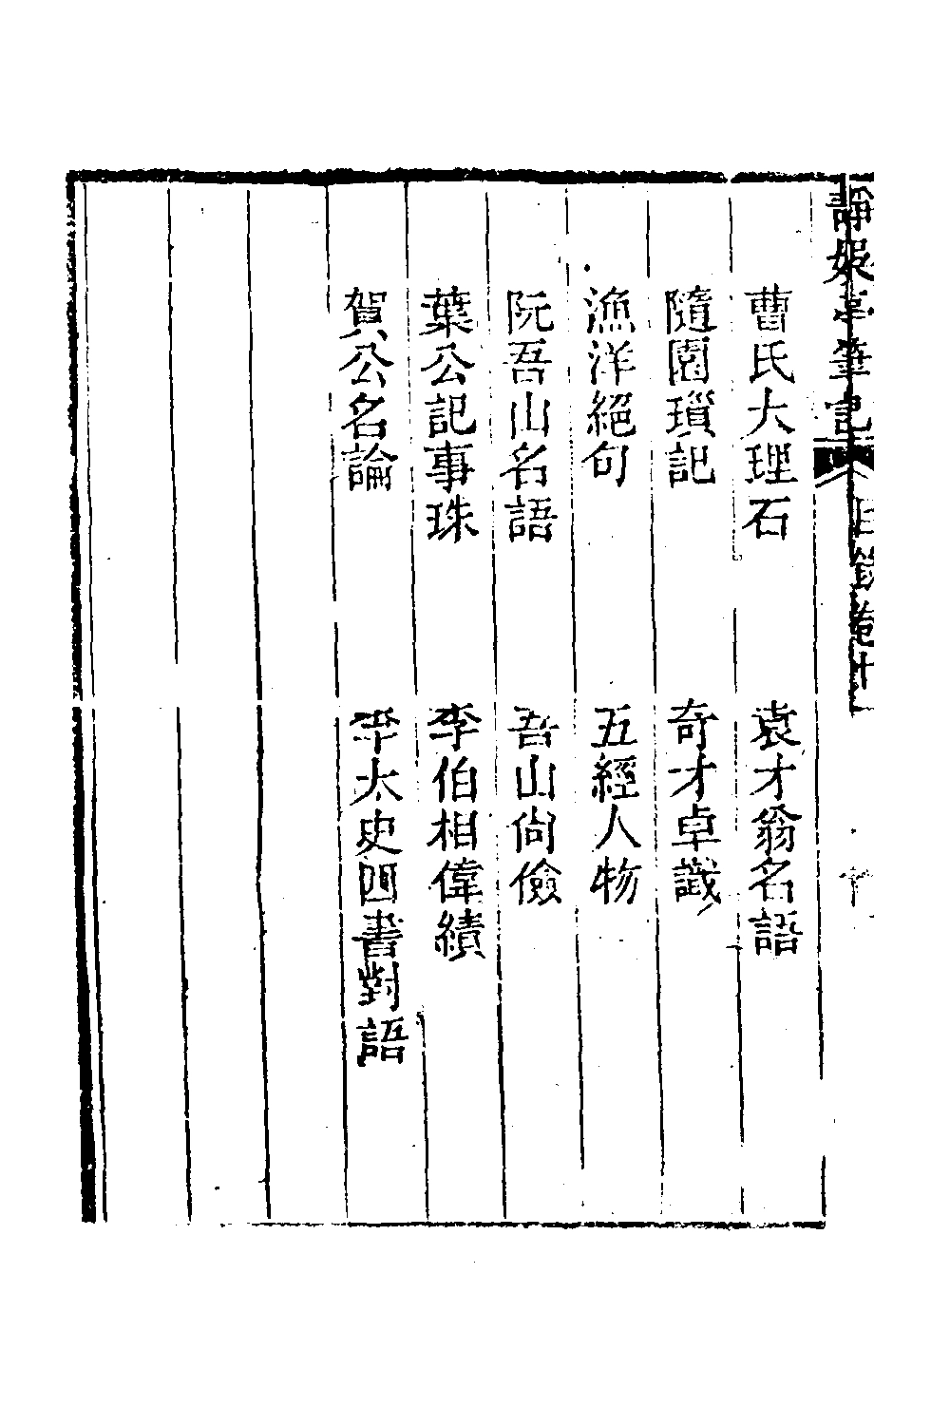 靜娛亭筆記
目錄卷十
十
曹氏大理石
袁才翁名語
隨園瑣記
奇才卓識
漁洋絕句
五經人物
阮吾山名語
吾山尙儉
葉公記事珠
李伯相偉績
賀公名論
太史四書對語